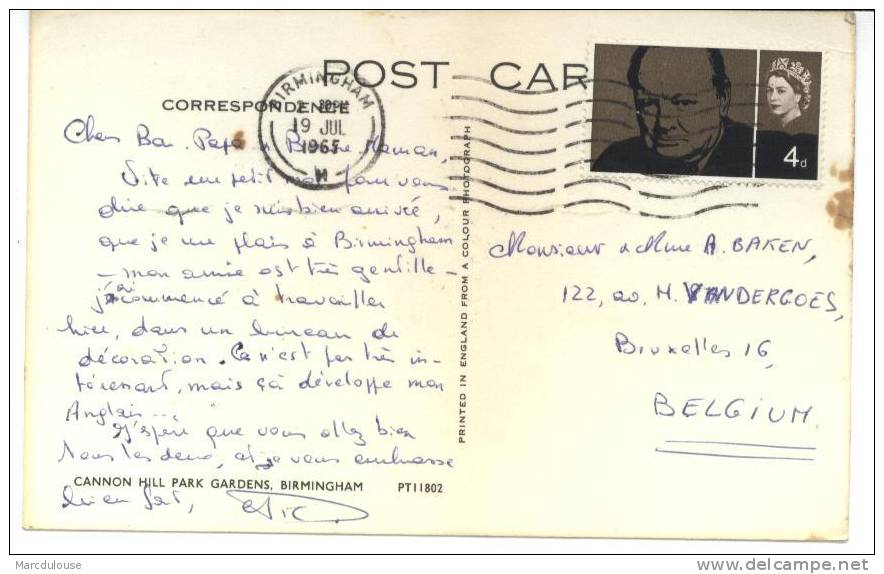 POST CAR
CORRESPONDENCE
BIRMINGHAM
19 JUL
1965
4d
Chers Bon-Papa & Bonne Maman,
Vite un petit mot pour vous
dire que je suis bien arrivée,
que je me plais à Birmingham
- mon amie est très gentille -
j'ai commencé à travailler
hier, dans un bureau de
décoration. Ca n'est pas très in-
téressant, mais çà développe mon
Anglais...
J'espère que vous allez bien
tous les deux, et je vous embrasse
bien fort,
CANNON HILL PARK GARDENS, BIRMINGHAM PT11802
PRINTED IN ENGLAND FROM A COLOUR PHOTOGRAPH
Monsieur & Mme A. BAKEN,
122, av. H. VANDERGOES,
Bruxelles 16,
BELGIUM.
Marcdulouse
delcampe.net